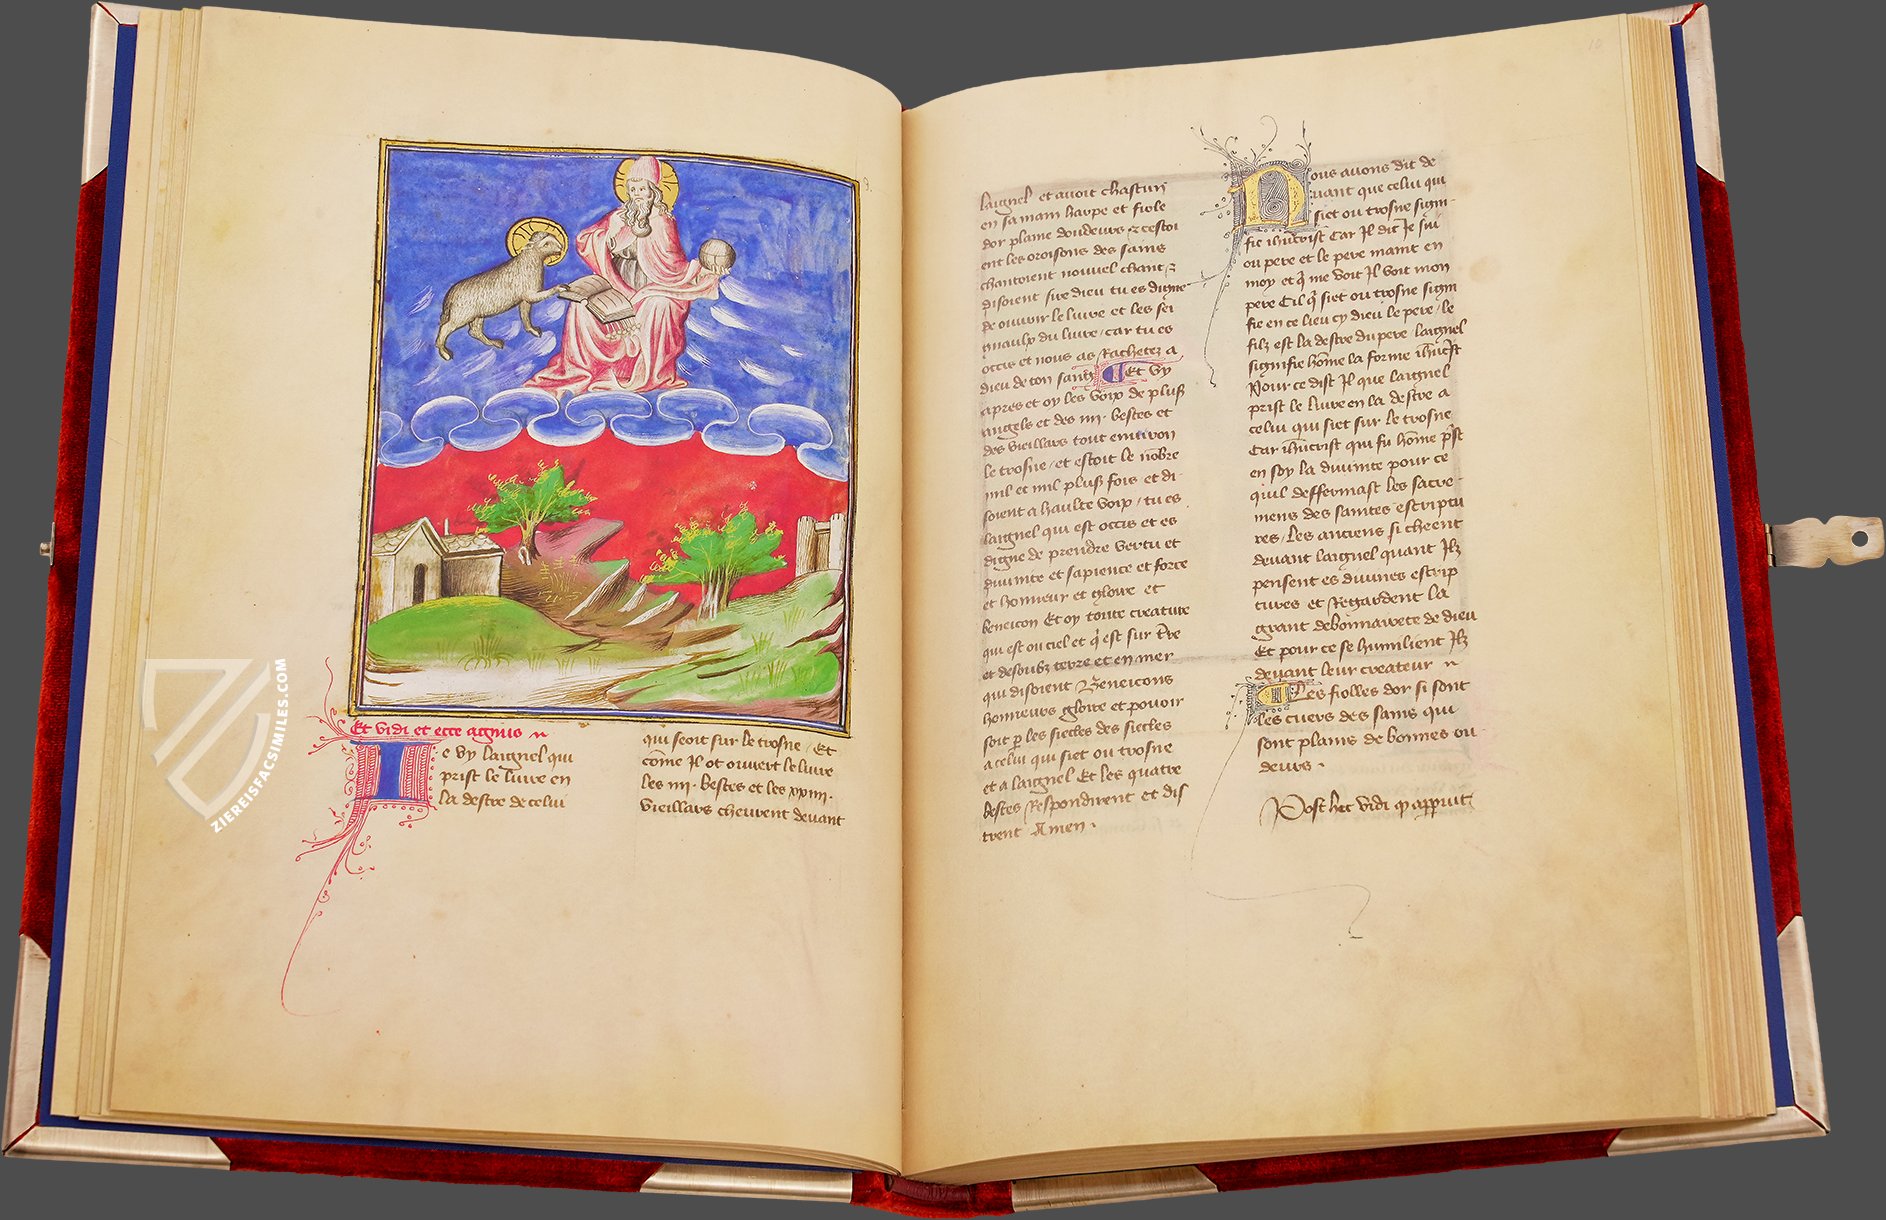 Et vidi et ecce agnus
Je vy laignel qui
prist le livre en
la destre de celui
qui seoit sur le trosne / Et
come Jl ot ouvert le livre
les iiii. bestes et les xxiiii.
vieillars cheurent devant
laignel et avoit chascun
en sa main harpe et fiole
dor plaine doudeurs
ent les oroisons des sains
chantoient nouvel chant
disoient sire dieu tu es digne
de ouvrir le livre et les sei
gnaulx du livre / car tu es
occis et nous as Rachetez a
dieu de ton sang Et vy
apres et oy les voix de pluss
angels et des iiii. bestes et
des vieillars tout environ
le trosne / et estoit le nobre
mil et mil pluss fois et di-
soient a haulte voix / tu es
laignel qui est occis et es
digne de prendre vertu et
divinite et sapience et force
et honneur et gloire et
beneicon Et oy toute creature
qui est ou ciel et q est sur tre
et desoubz terre et en mer
qui disoient Beneicons
honneurs gloire et povoir
soit p les siecles des siecles
a celui qui siet ou trosne
et a laignel Et les quatre
bestes Respondirent et dis
trent Amen .
Nous avons dit de
vant que celui qui
siet ou trosne signi-
fie ihucrist Car Jl dit Je sui
ou pere et le pere maint en
moy et q me voit Jl voit mon
pere Cil q siet ou trosne signi
fie en ce lieu cy dieu le pere / le
filz est la destre du pere / laignel
signifie home la forme ihucst
Pour ce dist Jl que laignel
prist le livre en la destre a
celui qui siet sur le trosne
Car ihucrist qui fu home pst
en soy la divinite pour ce
quil deffermast les sacre-
mens des saintes escriptu
res / Les anciens si cheent
devant laignel quant Jlz
pensent es divines escrip
tures et Regardent la
grant debonnairete de dieu
Et pour ce se humilient Jlz
devant leur createur
Les fiolles dor si sont
les cuers des sains qui
sont plains de bonnes ou
deurs .
Post hec vidi apparuit
ZIEREISFACSIMILES.COM